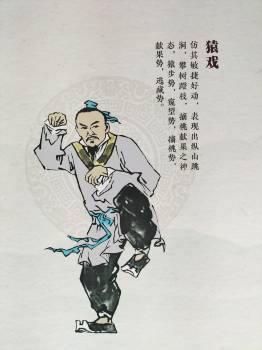 猿戏
仿其敏捷好动，表现出纵山跳
涧，攀树蹬枝，摘桃献果之神
态。猿步势，窥望势，摘桃势，
献果势，逃藏势。